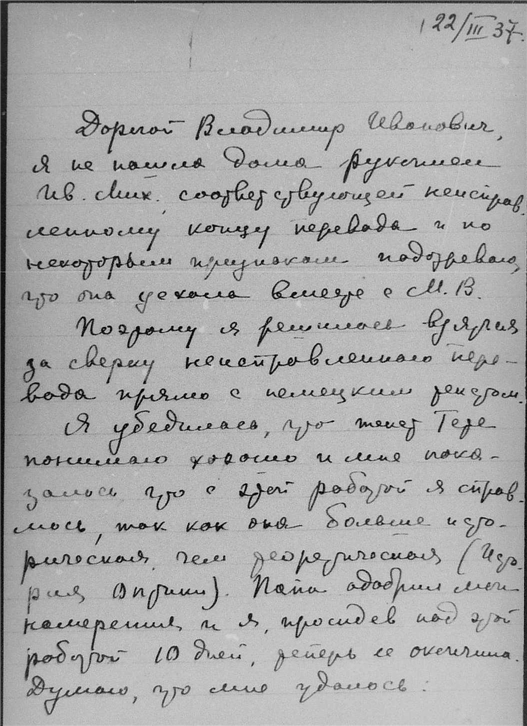 22/III 37.
Дорогой Владимир Иванович,
я не нашла дома рукописи
Ив. Мих. соответствующей неисправ-
ленному концу перевода и по
некоторым признакам подозреваю,
что она уехала вместе с М. В.
Поэтому я решилась взяться
за сверку неисправленного пере-
вода прямо с немецким текстом.
Я убедилась, что текст Гете
понимаю хорошо и мне пока-
залось что с этой работой я справ-
люсь, так как она больше исто-
рическая, чем теоретическая (Исто-
рия Оптики). Папа одобрил мои
намерения и я, просидев над этой
работой 10 дней, теперь ее окончила.
Думаю, что мне удалось: